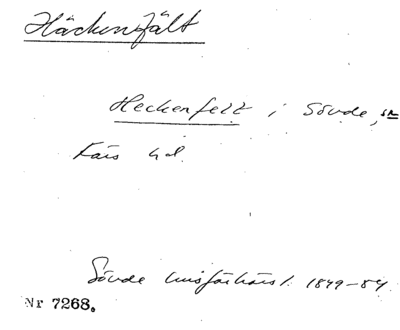 Häckenfält
Heckenfelt i Sövde, sn
Färs hd
Sövde husförhörsl. 1849-54
Nr 7268.